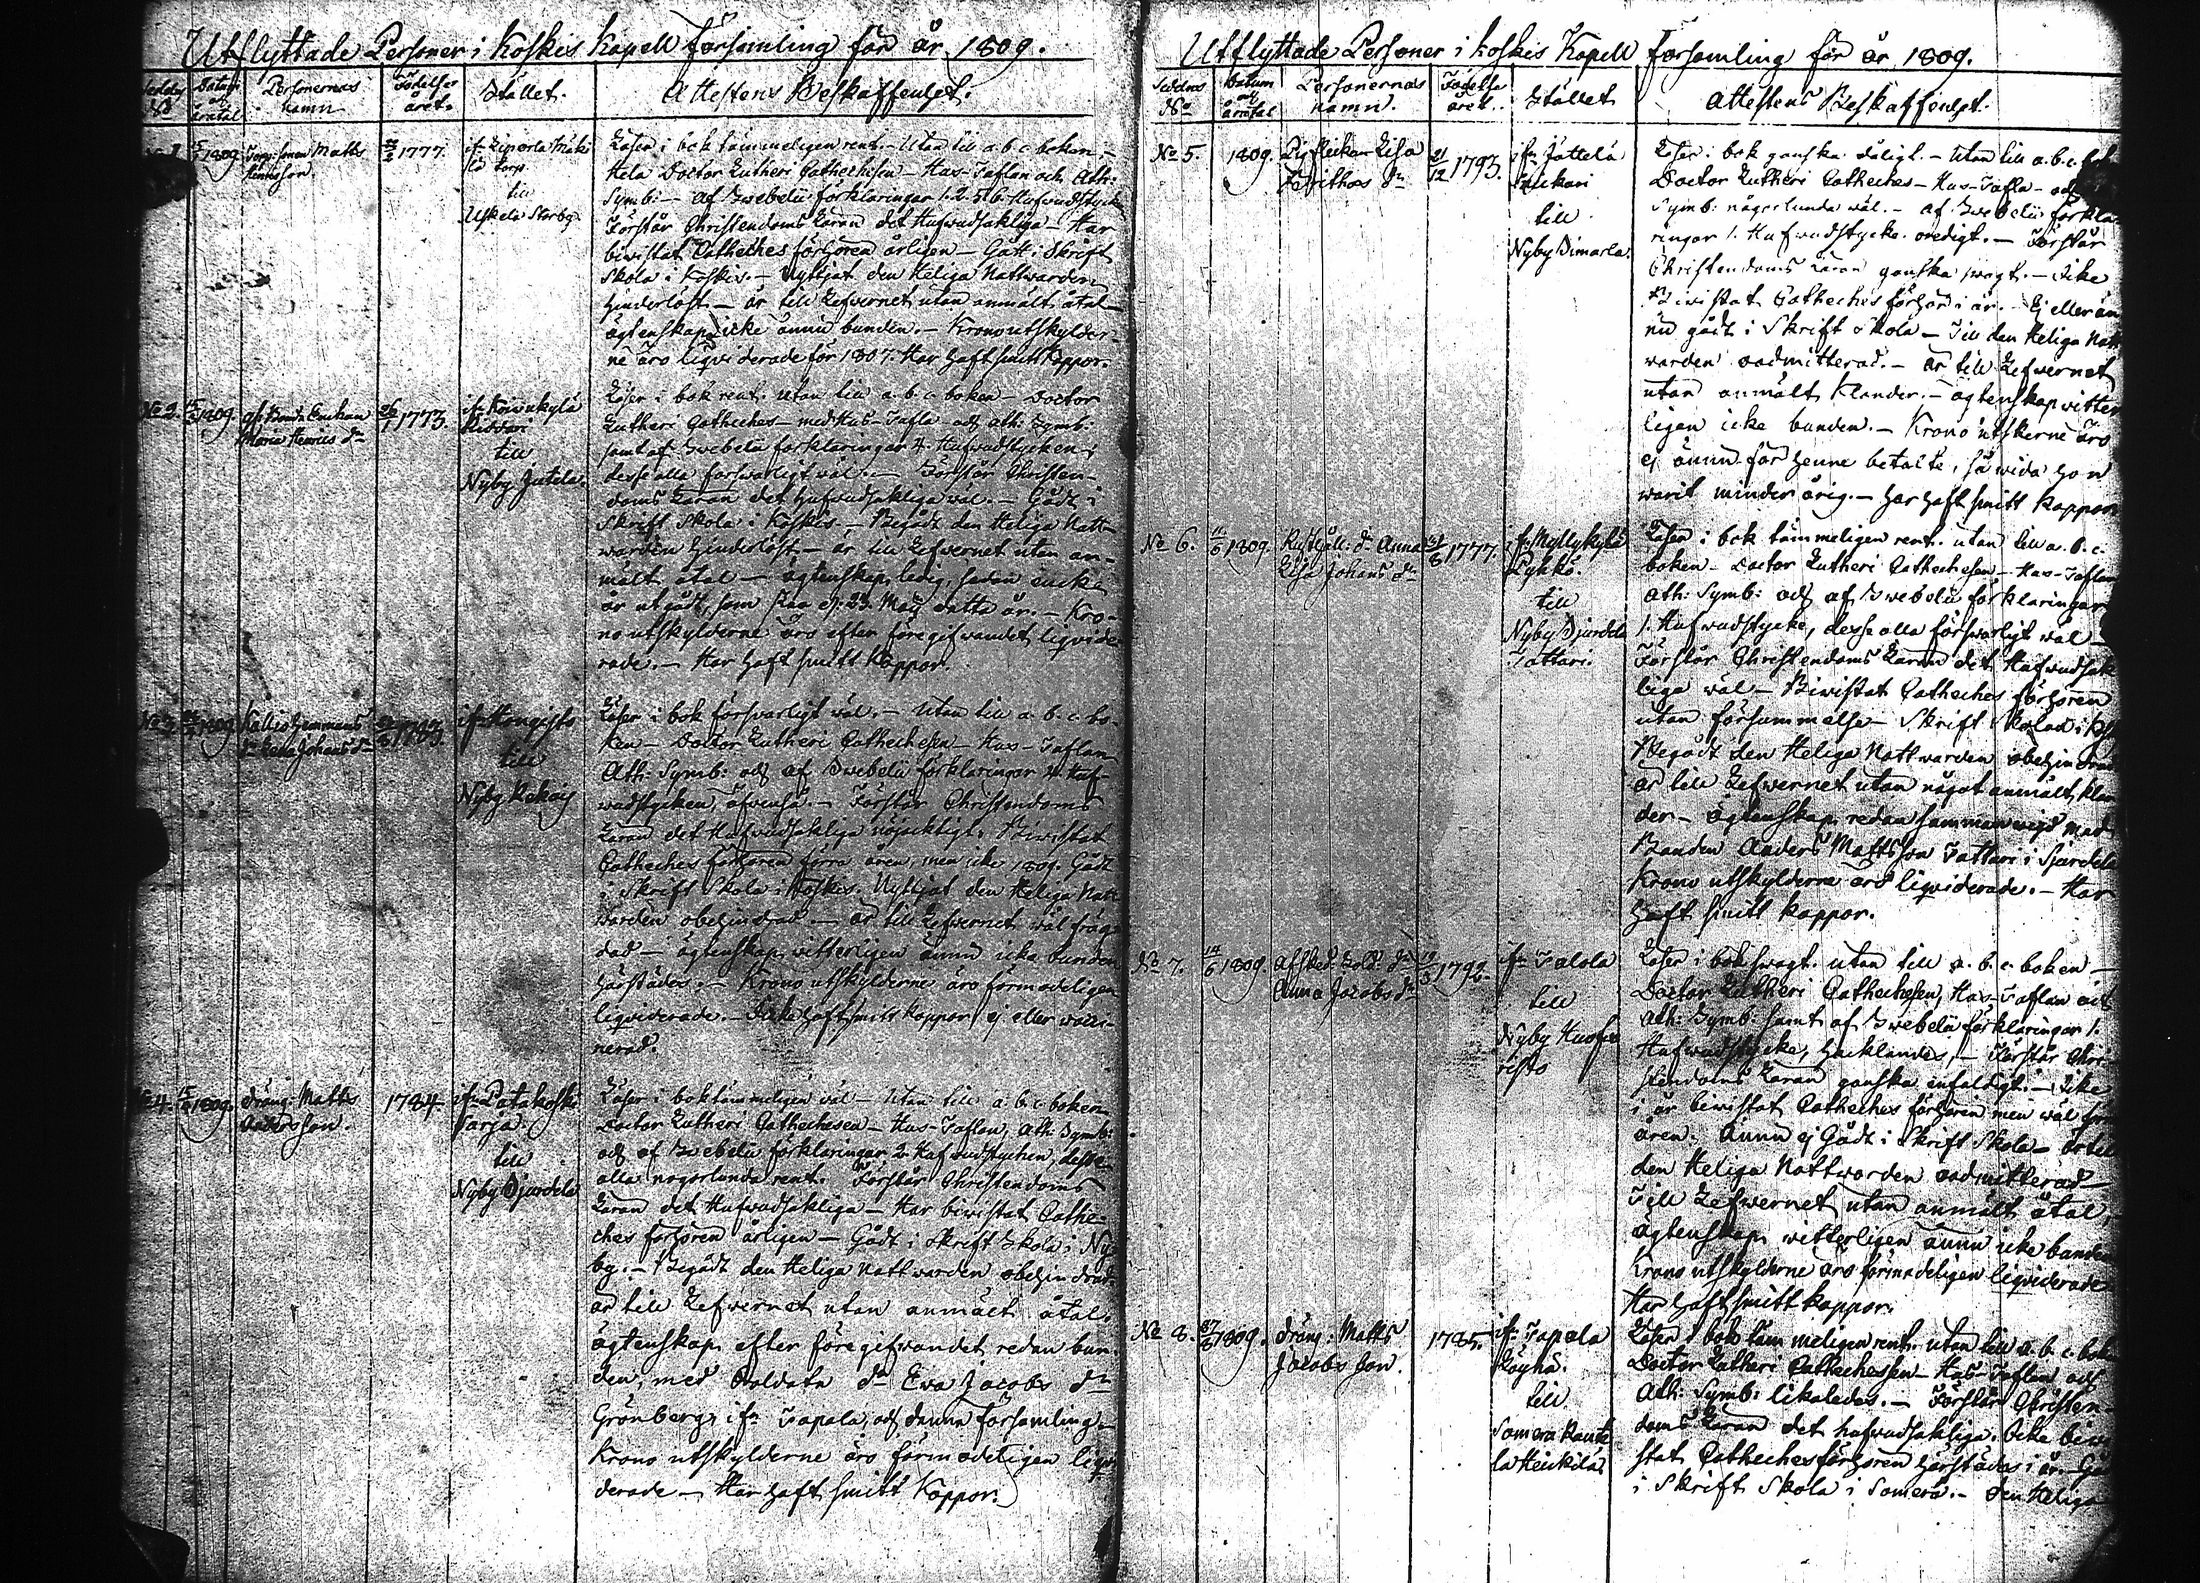 Utflyttade Personer i Koskis Kapell församling för år 1809.
Sedelns No
Datum och åratal
Personernas namn
Födelse året.
Stället.
Attestens Beskaffenhet.
1809.
Matts
1777.
till
Uskela
Läser i bok tämmeligen rent. – Utan till a. b. c. boken, –
Hela Doctor Lutheri Cathechesen – Hus-Taflan och Ath:
Symb: – af Swebelii förklaringar 1. 2. 5. 6. Hufwudstycke
Förstår Christendoms Läran det Hufwudsakliga – Har
biwistat Catheches förhören årligen – Gått i Skrift
Skola i Koskis. – Nyttjat den Heliga Nattwarden
hinderlöst – är till Lefwernet utan anmält åtal –
ägtenskap icke ännu bunden. – Krono utskylder-
ne äro liqviderade för 1807. Har haft smitt Koppor.
No 2.
1809.
Enckan
Maria Henrics dr
1773.
ifr. Koiwukylä
till
Nyby Jutela.
Läser i bok rent. utan till a. b. c. boken – Doctor
Lutheri Catheches – med Hus-Tafla och Ath: Symb:
samt af Swebelii förklaringar 4. Hufwudstycken,
desse alla förswarligt wäl. – Förstår Christen-
doms Läran det hufwudsakliga wäl. – Gådt i
Skrift Skola i Koskis. – Begådt den Heliga Natt-
warden hinderlöst – är till Lefwernet utan an-
mält åtal – ägtenskap ledig, sedan encke
år utgådt, som sker ej. 23. Maij detta år. – Kro-
no utskylderne äro efter föregifwandet liqvide-
rade. – Har haft smitt Koppor.
No 3.
1809.
dr Johans dr
1783.
ifr. Hongisto
till
Nyby
Läser i bok förswarligt wäl. – Utan till a. b. c. bo-
ken – Doctor Lutheri Cathechesen – Hus-Taflan
Ath: Symb: och af Swebelii förklaringar 4. Huf-
wudstycken, äfwenså. – Förstår Christendoms
Läran det Hufwudsakliga nöjacktigt. Biwistat
Catheches förhören förra åren, men icke 1809. Gådt
i Skrift Skola i Koskis. Nyttjat den Heliga Natt-
warden obehindrad. – är till Lefwernet wäl fräg-
dad – ägtenskap witterligen ännu icke bunden
härstädes. – Krono utskylderne äro förmodeligen
liqviderade. – Icke haft smitt koppor ej eller wacci-
nerad.
No 4.
1809.
Dräng. Matts
Andersson.
1784.
ifr. Patakoski
till
Nyby Djurdela
Läser i bok tämmeligen wäl – Utan till a. b. c. boken
Doctor Lutheri Cathechesen – Hus-Taflan, Ath: Symb:
och af Swebelii förklaringar 2. Hufwudstycken, desse
alla någorlunda rent. Förstår Christendoms
Läran det Hufwudsakliga – Har biwistat Cathe-
ches förhören årligen – Gådt i Skrift Skola i Ny-
by. – Begådt den Heliga Nattwarden obehindrad,
är till Lefwernet utan anmält åtal.
ägtenskap efter föregifwandet redan bun-
den, med Soldats dr Eva Jacobs dr
Grönberg, ifr. Tapala, och denna församling –
Krono utskylderne äro förmodeligen liqvi-
derade – Har haft smitt Koppor.
Utflyttade Personer i Koskis Kapell församling för år 1809.
Sedelns No
Datum och åratal
Personernas namn.
Födelse året.
Stället
Attestens Beskaffenhet.
No 5.
1809.
Pigflickan Lisa
dr
21/12 1793.
ifr.
till
Nyby
Läser i bok ganska dåligt. – Utan till a. b. c.
Doctor Lutheri Catheches – Hus-Tafla – och
Symb: någorlunda wäl. – af Swebelii förkla-
ringar 1. Hufwudstycke oredigt. – Förstår
Christendoms Läran ganska swagt. – Icke
Biwistat Catheches förhör i år. – Ej eller än-
nu gådt i Skrift Skola – Till den Heliga Natt-
warden oadmitterad. – är till Lefwernet
utan anmält Klander. – ägtenskap witter-
ligen icke bunden. – Krono utskerne äro
ej ännu för henne betalte, så wida hon
warit minder årig. – har haft smitt Koppor
No 6.
11/6 1809.
Rusthåll: dr Anna
Lisa Johans dr
1777.
ifr. Myllykylä
till
Nyby Djurdela
Tattari.
Läser i bok tämmeligen rent. utan till a. b. c.
boken – Doctor Lutheri Cathechesen – Hus-Taflan
Ath: Symb: och af Swebelii förklaringar
1. Hufwudstycke, desse alla förswarligt wäl –
Förstår Christendoms Läran det Hufwudsak-
liga wäl – Biwistat Catheches förhören
utan försummelse – Skrift Skolan i
Begådt den Heliga Nattwarden obehindrad
är till Lefwernet utan något anmält klan-
der – ägtenskap redan sammanwigd med
Bonden Anders Mattsson Tattari i Djurdela
Krono utskylderne äro liqviderade. – Har
haft smitt koppor.
No 7.
14/6 1809.
afsked. Sold: dr
Anna Jacobs dr
1792.
ifr. Talola
till
Nyby
risto
Läser i bok swagt. utan till a. b. c. boken –
Doctor Lutheri Cathechesen, Hus-Taflan och
Ath: Symb: samt af Swebelii förklaringar 1.
Hufwudstycke, hacklandes, – Förstår Chri-
stendoms Läran ganska enfaldigt. – Icke
i år biwistat Catheches förhören men wäl förra
åren. ännu ej Gådt i Skrift Skola – är till
den Heliga Nattwarden oadmitterad –
Till Lefwernet utan anmält åtal,
ägtenskap witterligen ännu icke bunden
Krono utskylderne äro förmodeligen liqviderade
Har haft smitt koppor.
No 8.
1809.
Dräng. Matts
Jacobsson.
1785.
ifr. Tapala
Köyhä.
till
Somero
Heickilä
Läser i bok tämmeligen rent. utan till a. b. c. bok
Doctor Lutheri Cathechesen – Hus-Taflan och
Ath: Symb: likaledes. – Förstår Christen-
doms Läran det hufwudsakliga. Icke biwi-
stat Catheches förhören härstädes i år. – Gå
i Skrift Skola i Somero. – den Heliga